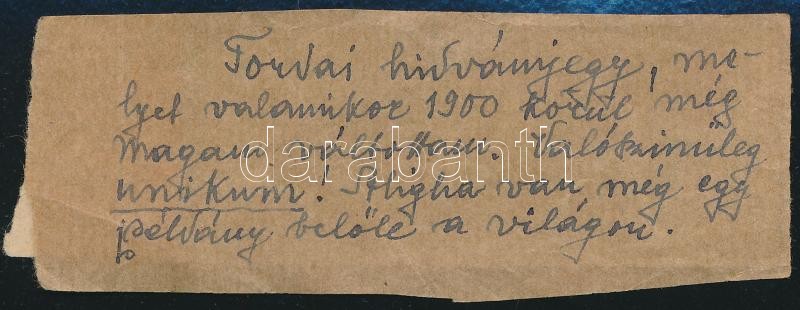 Tordai hidvámjegy, me-
lyet valamikor 1900 körül még
magam váltottam. Valószinüleg
unikum! Aligha van még egy
példány belőle a világon.
darabanth